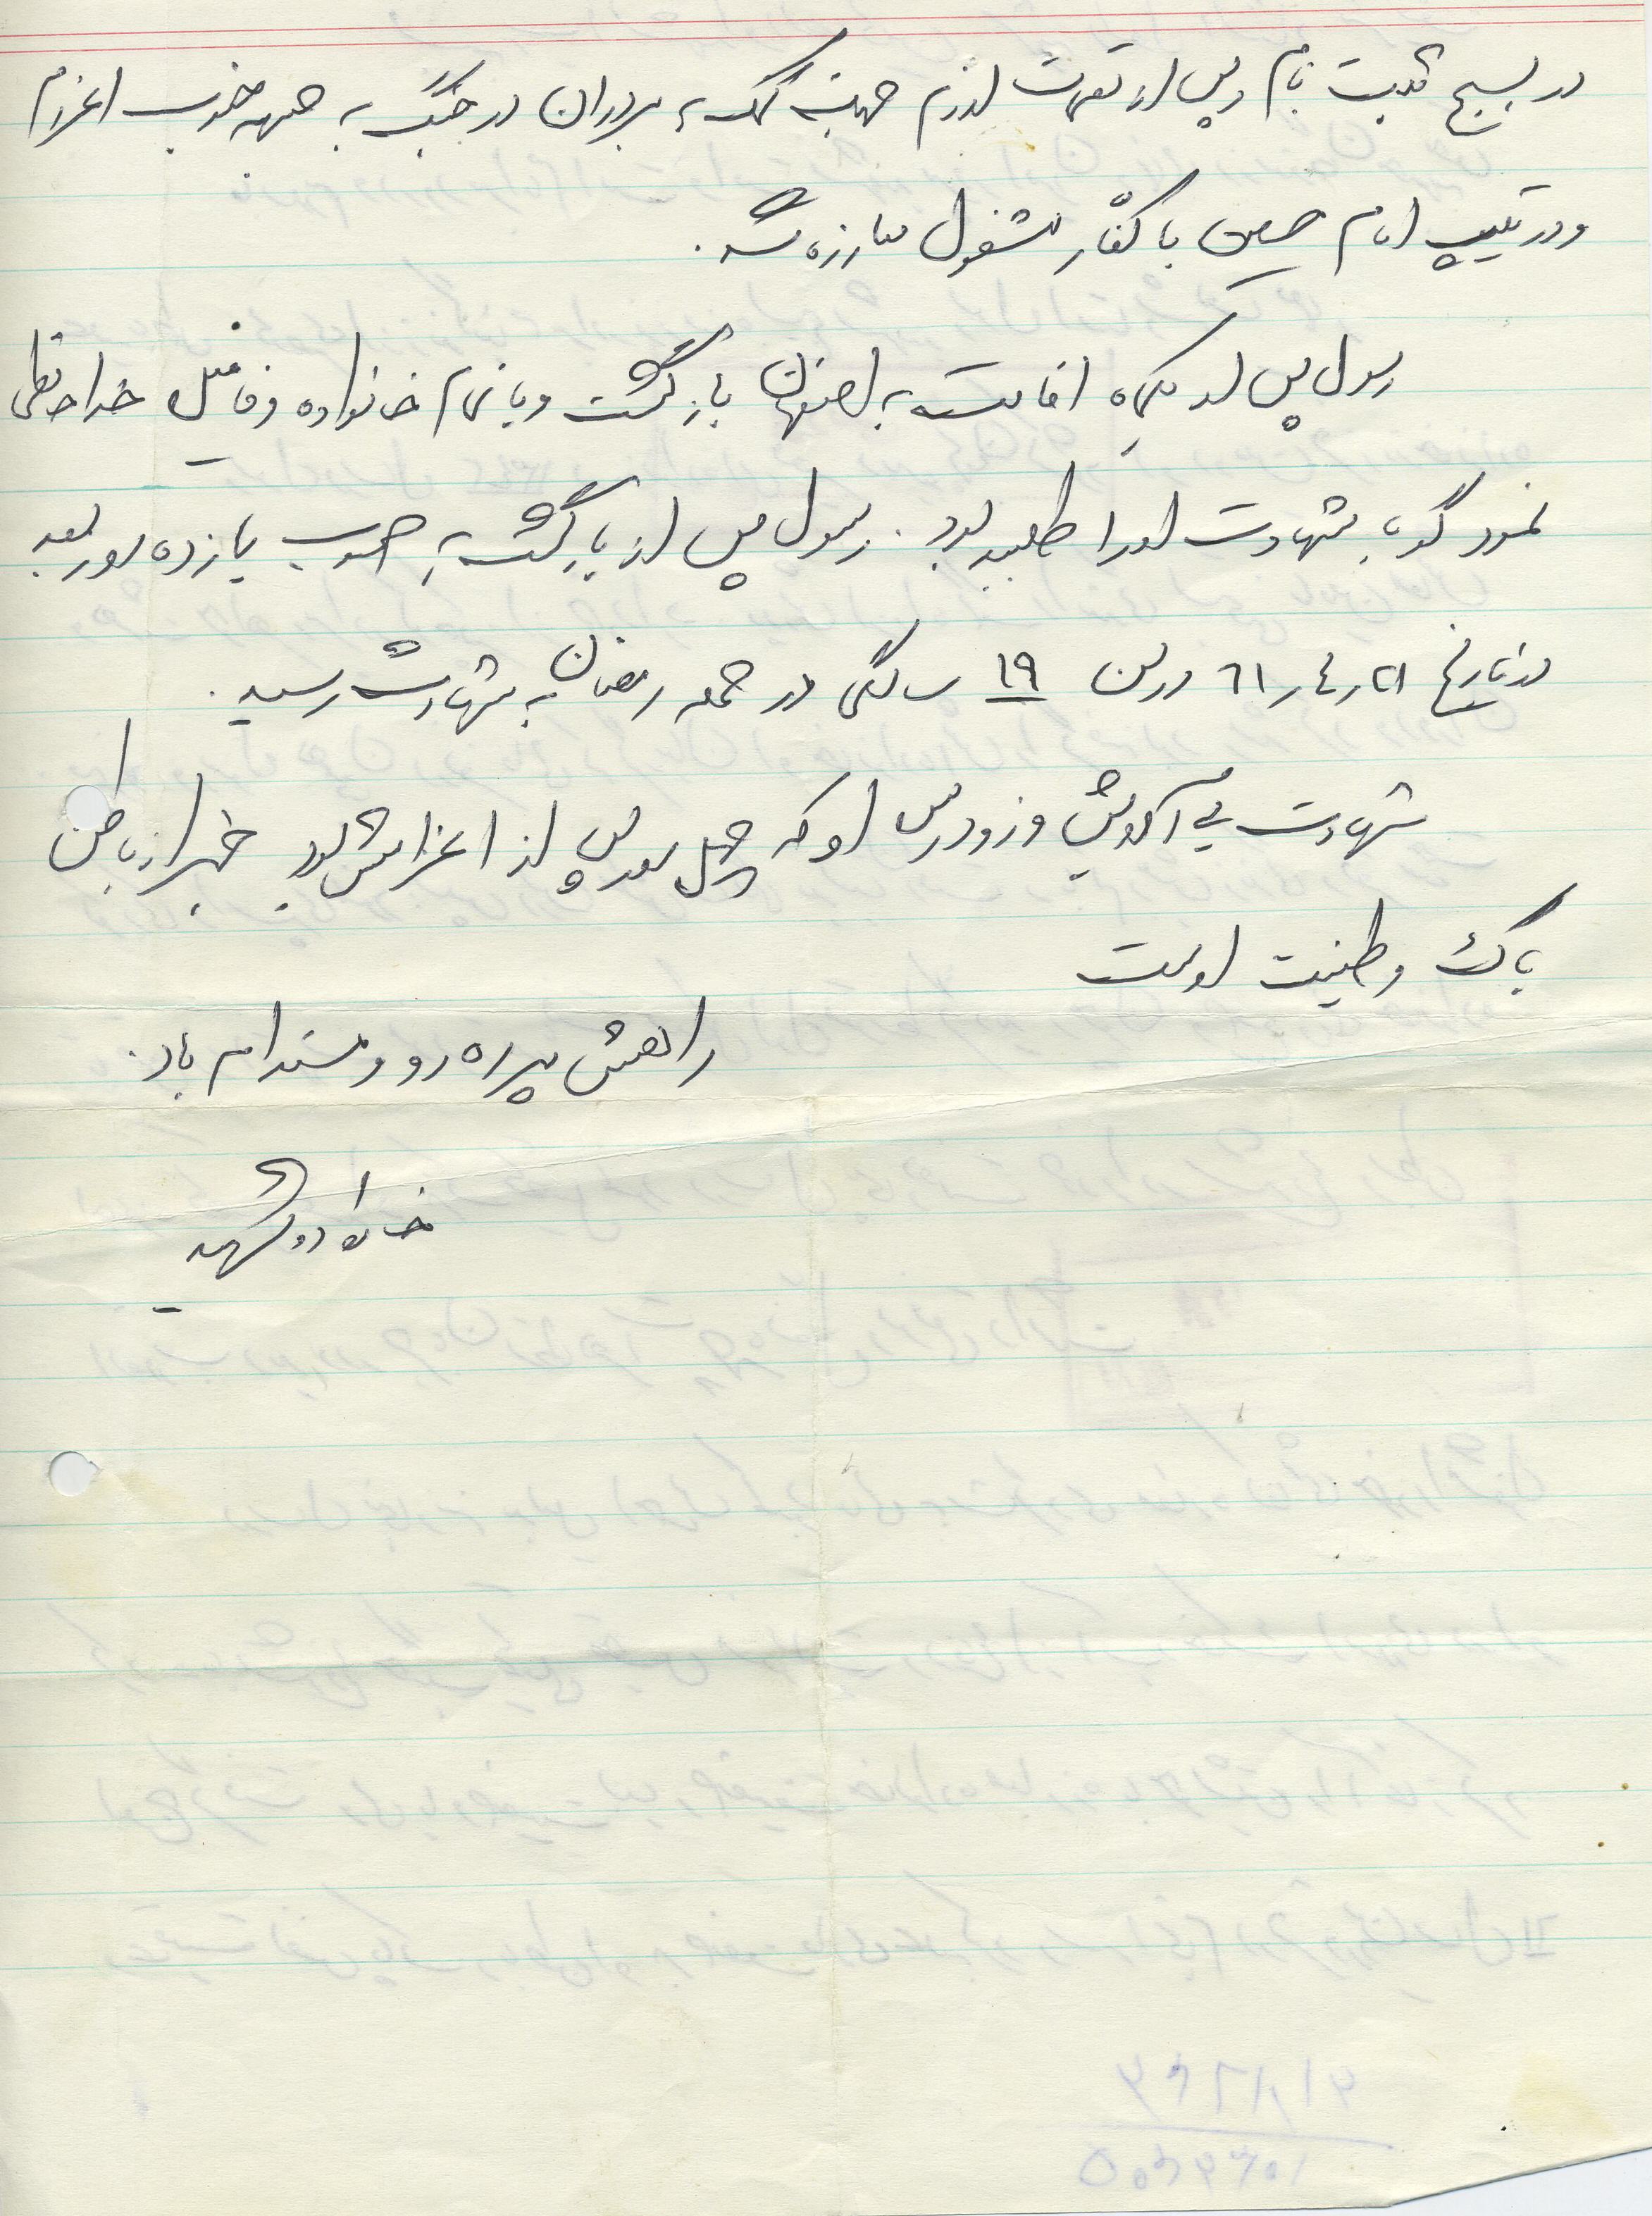 در بسیج ثبت نام و پس از تعلیمات لازم جهت کمک به برادران در جنگ به جبهه جنوب اعزام
و در تیپ امام حسین با کفار مشغول مبارزه شد.
رسول پس از یکماه اقامت به اصفهان بازگشت و با تمام خانواده و فامیل خداحافظی
نمود گویا شهادت او را طلبیده بود. رسول پس از بازگشت به جنوب یازده روز بعد
در تاریخ ۲۱ر۴ر۶۱ در سن ۱۹ سالگی در حمله رمضان به شهادت رسید.
شهادت بی آلایش و زودرس او که چهل روز پس از اعزامش بود خبر از باطن
پاک و طینت اوست
راهش پر ره رو و مستدام باد.
خانواده شهید